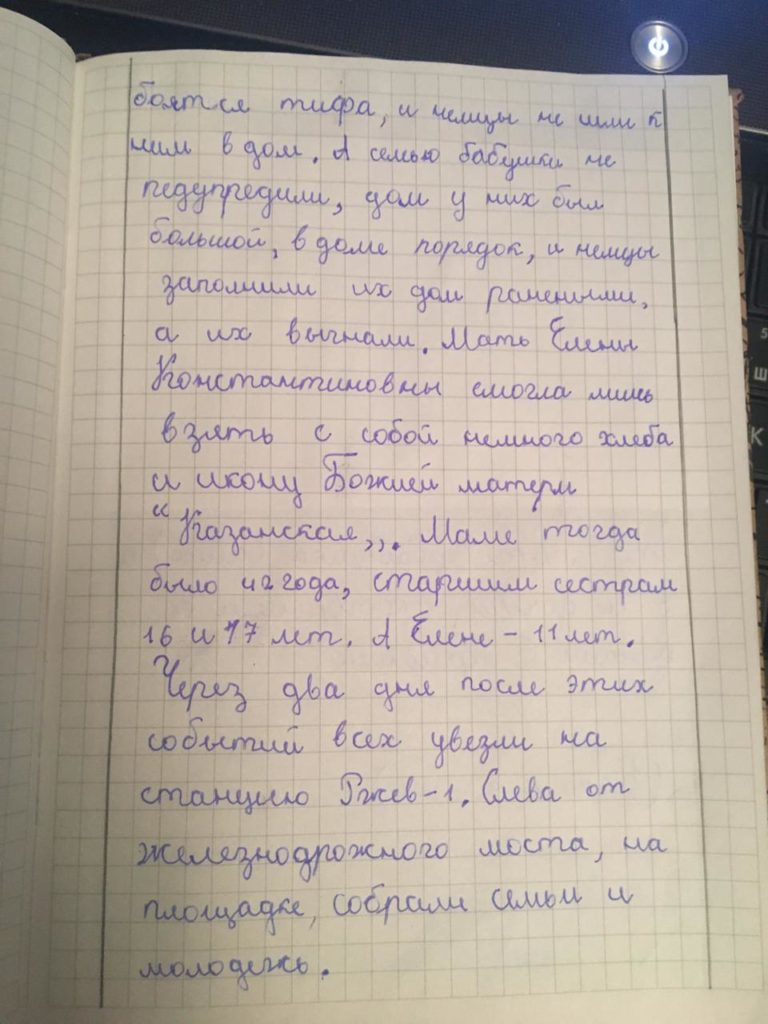 боятся тифа, и немцы не шли к
ним в дом. А семью бабушки не
педупредили, дом у них был
большой, в доме порядок, и немцы
заполнили их дом ранеными,
а их выгнали. Мать Елены
Константиновны смогла лишь
взять с собой немного хлеба
и икону Божией матери
“Казанская„. Маме тогда
было 42 года, старшим сестрам
16 и 17 лет. А Елене - 11 лет.
Через два дня после этих
событий всех увезли на
станцию Ржев-1. Слева от
железнодрожного моста, на
площадке, собрали семьи и
молодежь.